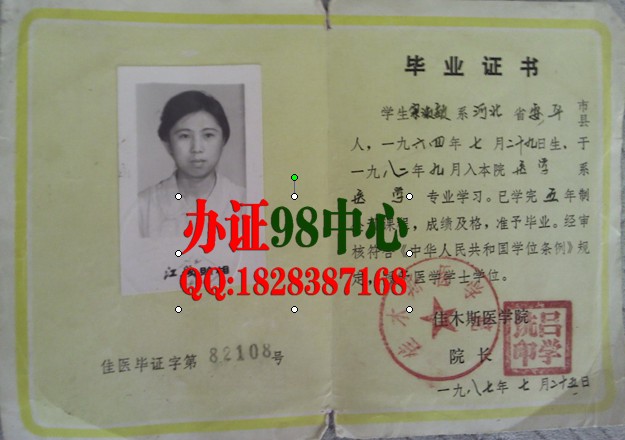 毕业证书
学生 系河北省 市县
人,一九六四年七月二十九日生,于
一九八二年九月入本院医学系
医学专业学习。已学完五年制
课程,成绩及格,准予毕业。经审
核符合《中华人民共和国学位条例》规
定, 医学学士学位。
佳木斯医学院
院长
一九八七年七月二十五日
佳医毕证字第82108号
办证98中心
QQ:1828387168